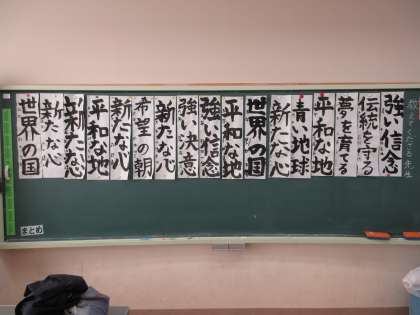 教えてくださる先生
強い信念
伝統を守る
夢を育てる
平和な地
青い地球
新たな心
世界の国
平和な地
強い信念
強い決意
新たな心
希望の朝
新たな心
平和な地
新たな心
新たな心
世界の国
まとめ